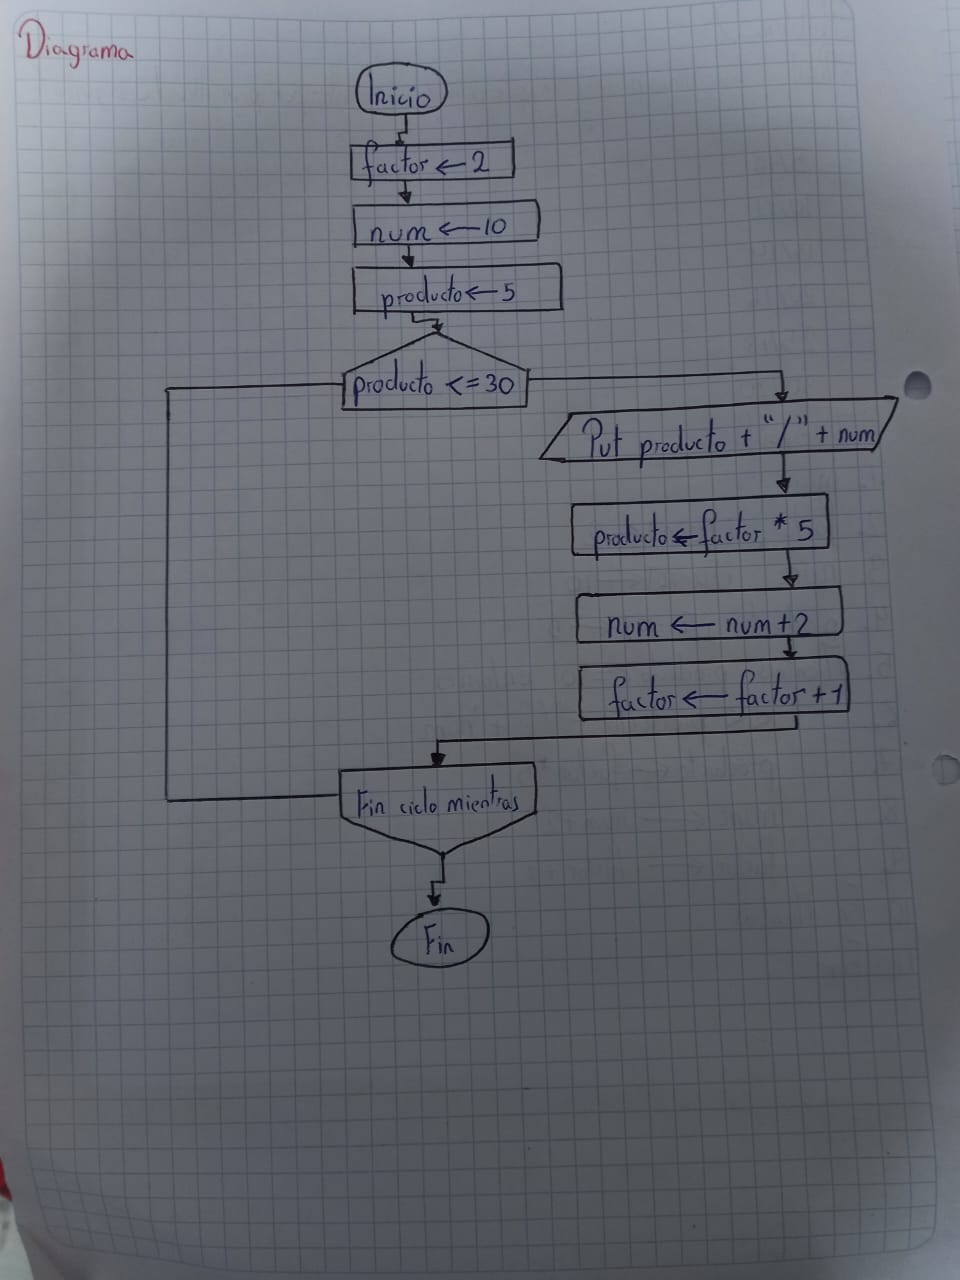 Diagrama
Inicio
factor ← 2
num ← 10
producto ← 5
producto <= 30
Put producto + "/" + num
producto ← factor * 5
num ← num + 2
factor ← factor + 1
Fin ciclo mientras
Fin